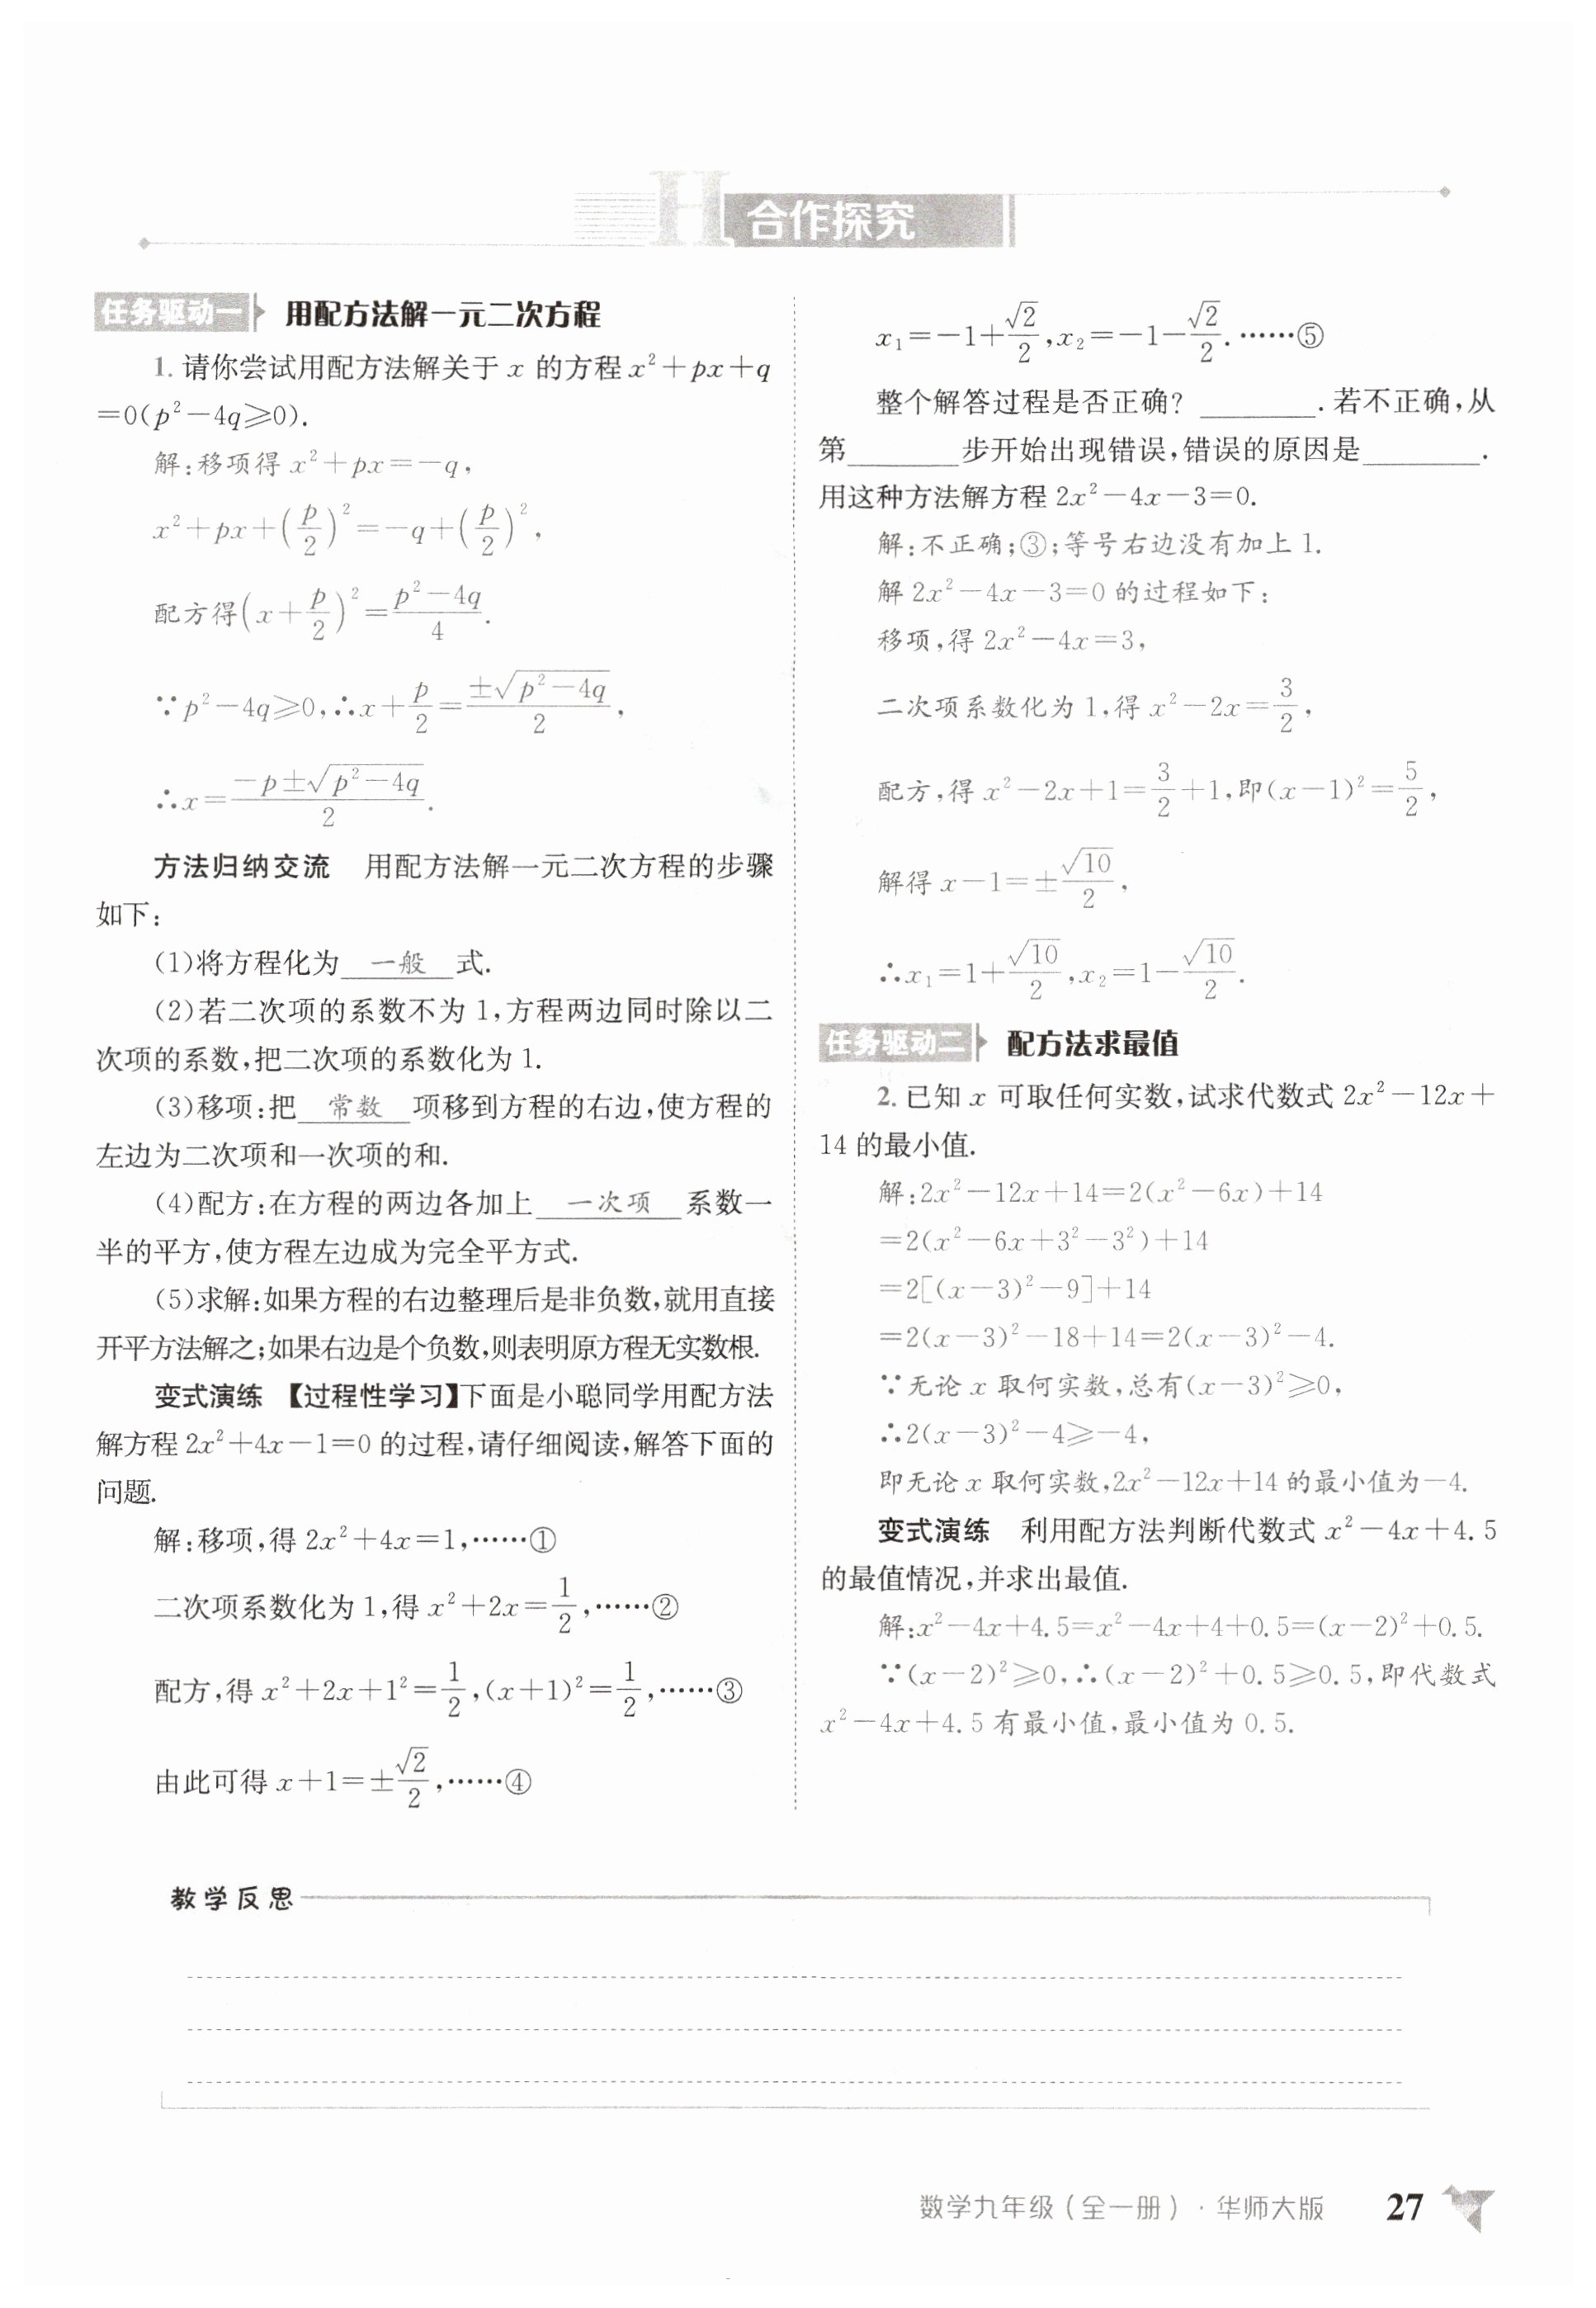 H 合作探究
任务驱动一 用配方法解一元二次方程
1. 请你尝试用配方法解关于 x 的方程 x²+px+q
=0(p²-4q≥0).
解:移项得 x²+px=-q,
x²+px+(p/2)²=-q+(p/2)²,
配方得(x+p/2)²=(p²-4q)/4.
∵p²-4q≥0,∴x+p/2=±√(p²-4q)/2,
∴x=(-p±√(p²-4q))/2.
方法归纳交流 用配方法解一元二次方程的步骤
如下:
(1)将方程化为 一般 式.
(2)若二次项的系数不为 1,方程两边同时除以二
次项的系数,把二次项的系数化为 1.
(3)移项:把 常数 项移到方程的右边,使方程的
左边为二次项和一次项的和.
(4)配方:在方程的两边各加上 一次项 系数一
半的平方,使方程左边成为完全平方式.
(5)求解:如果方程的右边整理后是非负数,就用直接
开平方法解之;如果右边是个负数,则表明原方程无实数根.
变式演练 【过程性学习】下面是小聪同学用配方法
解方程 2x²+4x-1=0 的过程,请仔细阅读,解答下面的
问题.
解:移项,得 2x²+4x=1,……①
二次项系数化为 1,得 x²+2x=1/2,……②
配方,得 x²+2x+1²=1/2,(x+1)²=1/2,……③
由此可得 x+1=±√2/2,……④
x₁=-1+√2/2,x₂=-1-√2/2.……⑤
整个解答过程是否正确? ________.若不正确,从
第________步开始出现错误,错误的原因是________.
用这种方法解方程 2x²-4x-3=0.
解:不正确;③;等号右边没有加上 1.
解 2x²-4x-3=0 的过程如下:
移项,得 2x²-4x=3,
二次项系数化为 1,得 x²-2x=3/2,
配方,得 x²-2x+1=3/2+1,即(x-1)²=5/2,
解得 x-1=±√10/2,
∴x₁=1+√10/2,x₂=1-√10/2.
任务驱动二 配方法求最值
2. 已知 x 可取任何实数,试求代数式 2x²-12x+
14 的最小值.
解:2x²-12x+14=2(x²-6x)+14
=2(x²-6x+3²-3²)+14
=2[(x-3)²-9]+14
=2(x-3)²-18+14=2(x-3)²-4.
∵无论 x 取何实数,总有(x-3)²≥0,
∴2(x-3)²-4≥-4,
即无论 x 取何实数,2x²-12x+14 的最小值为-4.
变式演练 利用配方法判断代数式 x²-4x+4.5
的最值情况,并求出最值.
解:x²-4x+4.5=x²-4x+4+0.5=(x-2)²+0.5.
∵(x-2)²≥0,∴(x-2)²+0.5≥0.5,即代数式
x²-4x+4.5 有最小值,最小值为 0.5.
教学反思
数学九年级(全一册)·华师大版 27